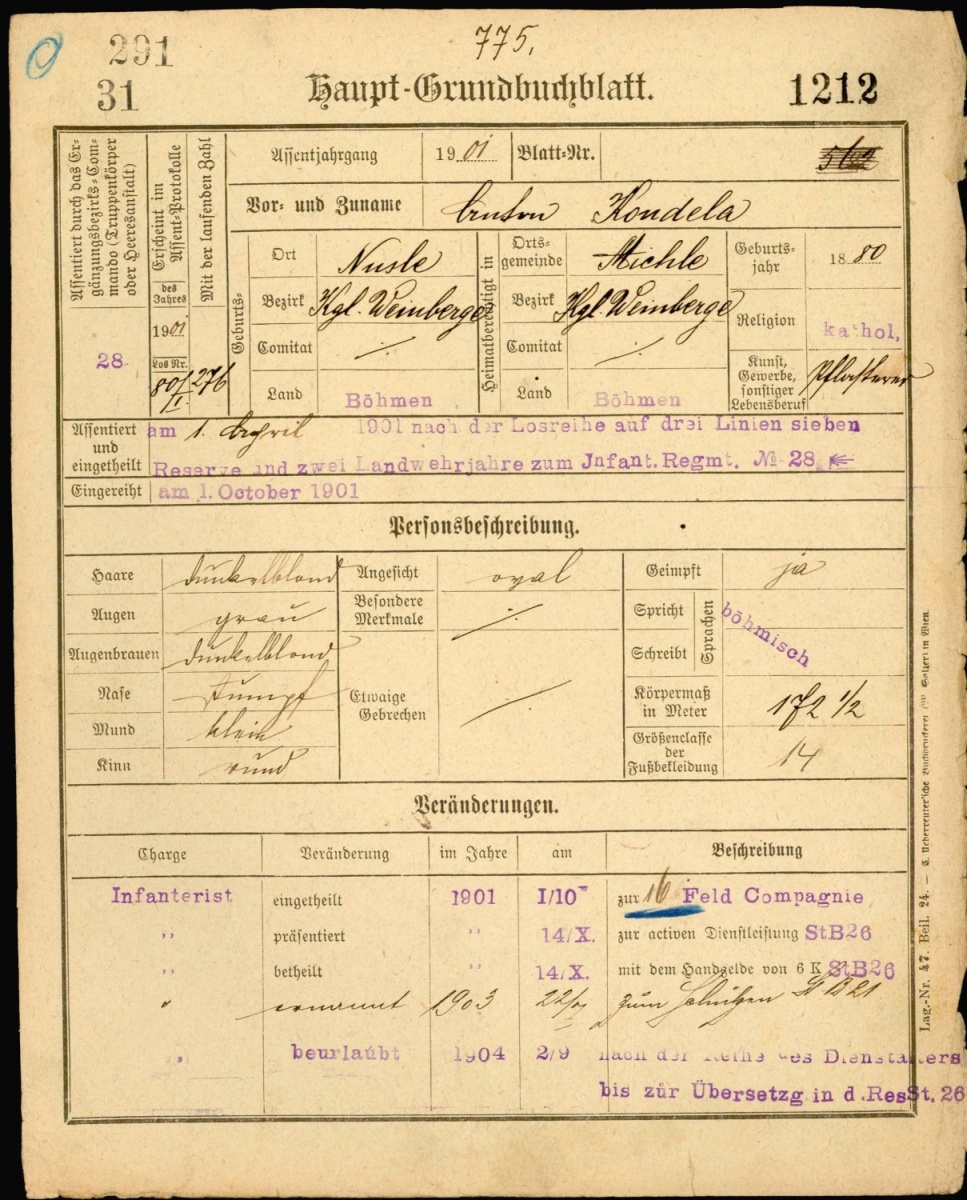 291
775.
31
Haupt-Grundbuchblatt.
1212
Assentiert durch das Ergänzungsbezirks-Commando (Truppenkörper oder Heeresanstalt)
28
Erscheint im Assent-Protokolle
des Jahres
1901
Los Nr.
Mit der laufenden Zahl
276
Assentjahrgang 1901 Blatt-Nr.
Vor- und Zuname Anton Kondela
Geburts-
Ort Nusle
Bezirk Kgl. Weinberge
Comitat ./.
Land Böhmen
Heimatberechtigt in
Ortsgemeinde Michle
Bezirk Kgl. Weinberge
Comitat ./.
Land Böhmen
Geburtsjahr 1880
Religion kathol,
Kunst, Gewerbe, sonstiger Lebensberuf Pflasterer
Assentiert und eingetheilt am 1. April 1901 nach der Losreihe auf drei Linien sieben
Reserve und zwei Landwehrjahre zum Jnfant. Regmt. № 28
Eingereiht am 1. October 1901
Personsbeschreibung.
Haare dunkelblond
Augen grau
Augenbrauen dunkelblond
Nase stumpf
Mund klein
Kinn rund
Angesicht oval
Besondere Merkmale ./.
Etwaige Gebrechen ./.
Geimpft ja
Spricht
Schreibt
Sprachen
böhmisch
Körpermaß in Meter 172 1/2
Größenclasse der Fußbekleidung 14
Veränderungen.
Charge Veränderung im Jahre am Beschreibung
Infanterist eingetheilt 1901 1/10 zur 16 Feld Compagnie
,, präsentiert ,, 14/X. zur activen Dienstleistung StB26
,, betheilt ,, 14/X. mit dem Handgelde von 6 K StB26
" ernannt 1903 zum Schützen St B 21
,, beurlaubt 1904 2/9 nach der Reihe des Dienstalters
bis zur Übersetzg in d.Res St. 26
Lag.-Nr. 47. Beil. 24.